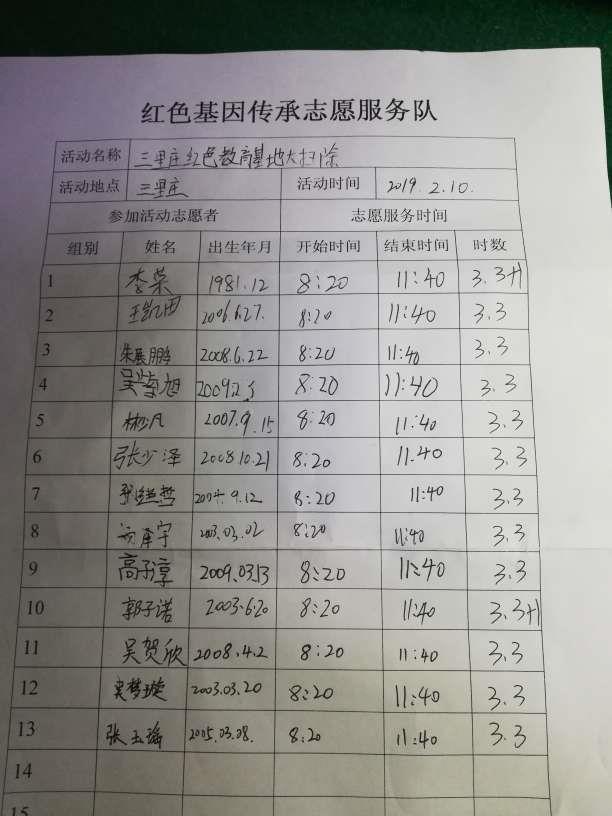 红色基因传承志愿服务队
活动名称 三里庄红色教育基地大扫除
活动地点 三里庄 活动时间 2019.2.10.
参加活动志愿者 志愿服务时间
组别 姓名 出生年月 开始时间 结束时间 时数
1 李荣 1981.12 8:20 11:40 3.3+1
2 王凯田 2006.6.27. 8:20 11:40 3.3
3 朱展鹏 2008.6.22 8:20 11:40 3.3
4 吴紫旭 8:20 11:40 3.3
5 林少凡 2007.9.15 8:20 11:40 3.3
6 张少泽 2008 10.21 8:20 11.40 3.3
7 2004.9.12 8:20 11:40 3.3
8 2003.03.02 8:20 11:40 3.3
9 高子淳 2009.03.13 8:20 11:40 3.3
10 郭子诺 2003.6.20 8:20 11:40 3.3+1
11 吴贺欣 2008.4.2 8:20 11:40 3.3
12 吴梦璇 2003.03.20 8:20 11:40 3.3
13 张玉瑶 2005.03.08. 8:20 11:40 3.3
14
15